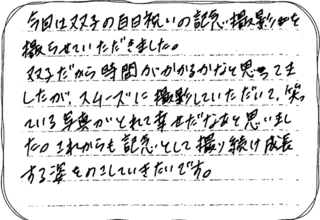 今回は双子の百日祝いの記念撮影を
撮らせていただきました。
双子だから時間がかかるかなと思ってま
したが、スムーズに撮影していただいて、笑っ
ている写真がとれて幸せだなあと思いまし
た。これからも記念として撮り続け成長
する姿をのこしていきたいです。